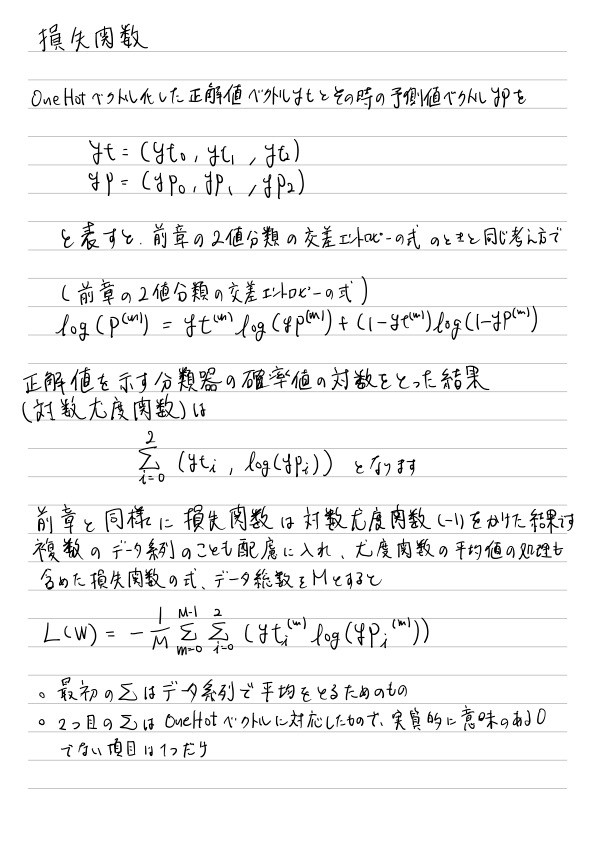 損失関数
OneHotベクトル化した正解値ベクトルytとその時の予測値ベクトルypを
yt = (yt₀, yt₁, yt₂)
yp = (yp₀, yp₁, yp₂)
と表すと、前章の2値分類の交差エントロピーの式のときと同じ考え方で
(前章の2値分類の交差エントロピーの式)
log(P⁽ᵐ⁾) = yt⁽ᵐ⁾log(yp⁽ᵐ⁾) + (1-yt⁽ᵐ⁾)log(1-yp⁽ᵐ⁾)
正解値を示す分類器の確率値の対数をとった結果
(対数尤度関数)は
∑_{i=0}^{2} (ytᵢ, log(ypᵢ)) となります
前章と同様に損失関数は対数尤度関数(-1)をかけた結果です
複数のデータ系列のことも配慮に入れ、尤度関数の平均値の処理も
含めた損失関数の式、データ総数をMとすると
L(W) = -\frac{1}{M} ∑_{m=0}^{M-1} ∑_{i=0}^{2} (ytᵢ⁽ᵐ⁾log(ypᵢ⁽ᵐ⁾))
○ 最初のΣはデータ系列で平均をとるためのもの
○ 2つ目のΣはOneHotベクトルに対応したもので、実質的に意味のある0
でない項目は1つだけ